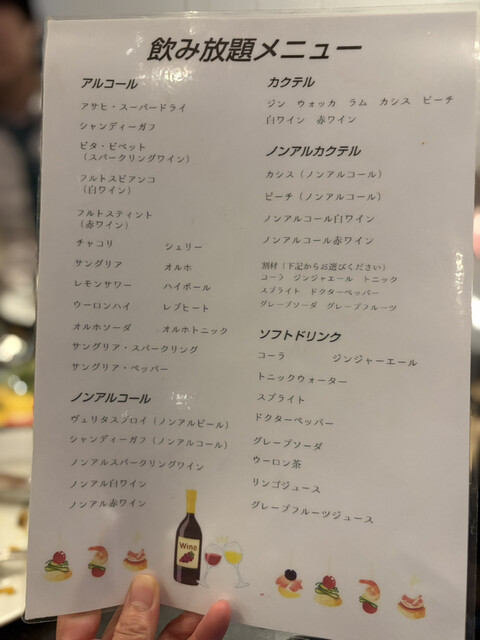 飲み放題メニュー
アルコール
アサヒ・スーパードライ
シャンディーガフ
ビタ・ビベット
(スパークリングワイン)
フルトスビアンコ
(白ワイン)
フルトスティント
(赤ワイン)
チャコリ シェリー
サングリア オルホ
レモンサワー ハイボール
ウーロンハイ レブヒート
オルホソーダ オルホトニック
サングリア・スパークリング
サングリア・ペッパー
ノンアルコール
ヴェリタスブロイ(ノンアルビール)
シャンディーガフ(ノンアルコール)
ノンアルスパークリングワイン
ノンアル白ワイン
ノンアル赤ワイン
カクテル
ジン ウォッカ ラム カシス ピーチ
白ワイン 赤ワイン
ノンアルカクテル
カシス(ノンアルコール)
ピーチ(ノンアルコール)
ノンアルコール白ワイン
ノンアルコール赤ワイン
割材(下記からお選びください)
コーラ ジンジャエール トニック
スプライト ドクターペッパー
グレープソーダ グレープフルーツ
ソフトドリンク
コーラ ジンジャーエール
トニックウォーター
スプライト
ドクターペッパー
グレープソーダ
ウーロン茶
リンゴジュース
グレープフルーツジュース
Wine